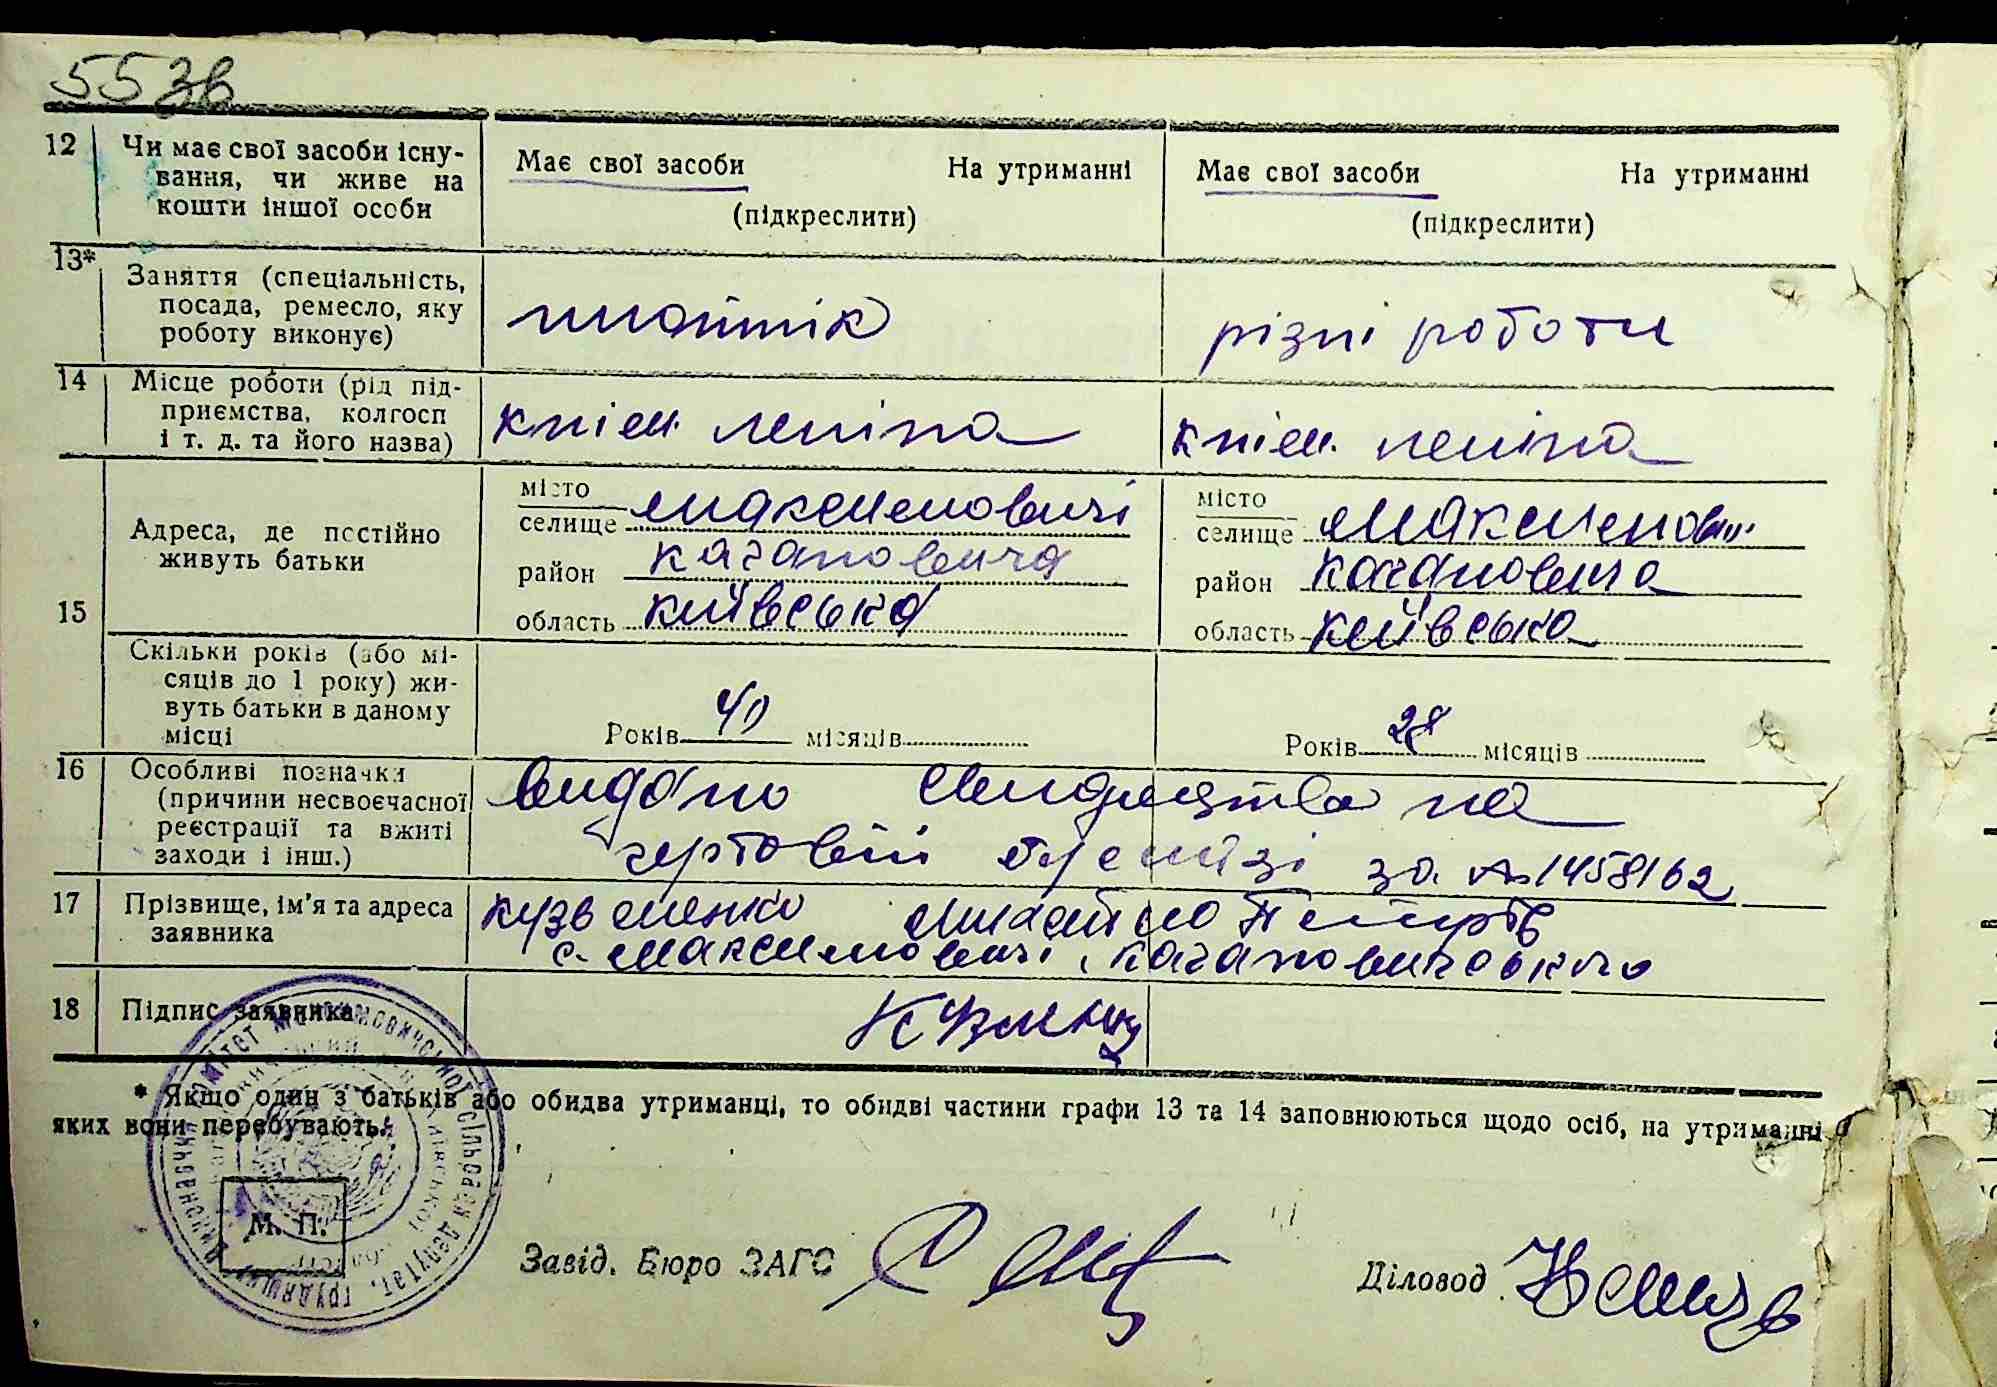 553в
12 Чи має свої засоби існу-
вання, чи живе на
кошти іншої особи
Має свої засоби На утриманні
(підкреслити)
Має свої засоби На утриманні
(підкреслити)
13* Заняття (спеціальність,
посада, ремесло, яку
роботу виконує)
різні роботи
14 Місце роботи (рід під-
приємства, колгосп
і т. д. та його назва)
к-п ім. леніна
к-п ім. леніна
15 Адреса, де постійно
живуть батьки
місто
селище максимовичі
район кагановича
область київська
місто
селище максимович
район кагановича
область київська
Скільки років (або мі-
сяців до 1 року) жи-
вуть батьки в даному
місці
Років 40 місяців
Років 28 місяців
16 Особливі позначки
(причини несвоєчасної
реєстрації та вжиті
заходи і інш.)
видано свидицтва на
гертовій за № 1458162
17 Прізвище, ім'я та адреса
заявника
кузьменко
с. максимовичі, кагановичського
18 Підпис заявника
* Якщо один з батьків або обидва утриманці, то обидві частини графи 13 та 14 заповнюються щодо осіб, на утриманні
яких вони перебувають.
М. П.
Завід. Бюро ЗАГС
Діловод